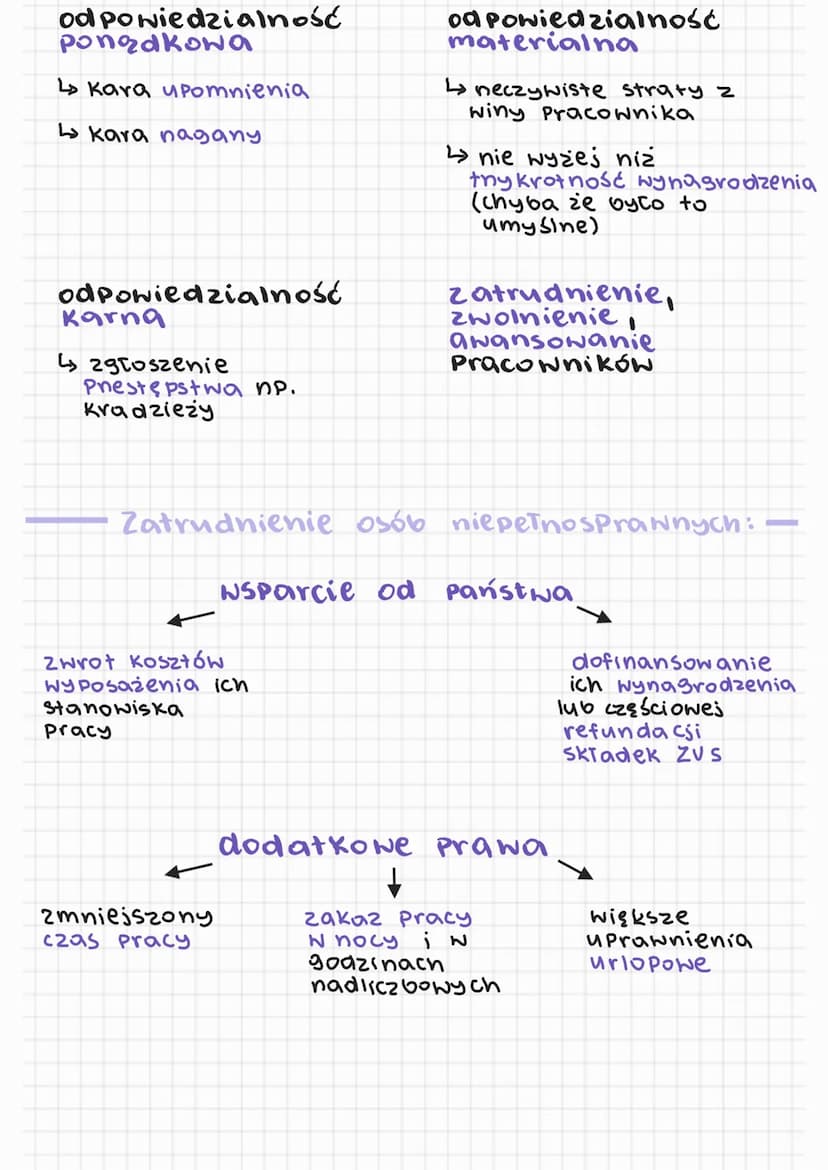 odpowiedzialność
porządkowa
↳ kara upomnienia
↳ kara nagany
odpowiedzialność
materialna
↳ rzeczywiste straty z
winy pracownika
↳ nie wyżej niż
trzykrotność wynagrodzenia
(chyba że było to
umyślne)
odpowiedzialność
karna
↳ zgłoszenie
przestępstwa np.
kradzieży
zatrudnienie,
zwolnienie,
awansowanie
pracowników
Zatrudnienie osób niepełnosprawnych:
wsparcie od państwa
zwrot kosztów
wyposażenia ich
stanowiska
pracy
dofinansowanie
ich wynagrodzenia
lub częściowej
refundacji
składek ZUS
dodatkowe prawa
zmniejszony
czas pracy
zakaz pracy
w nocy i w
godzinach
nadliczbowych
większe
uprawnienia
urlopowe